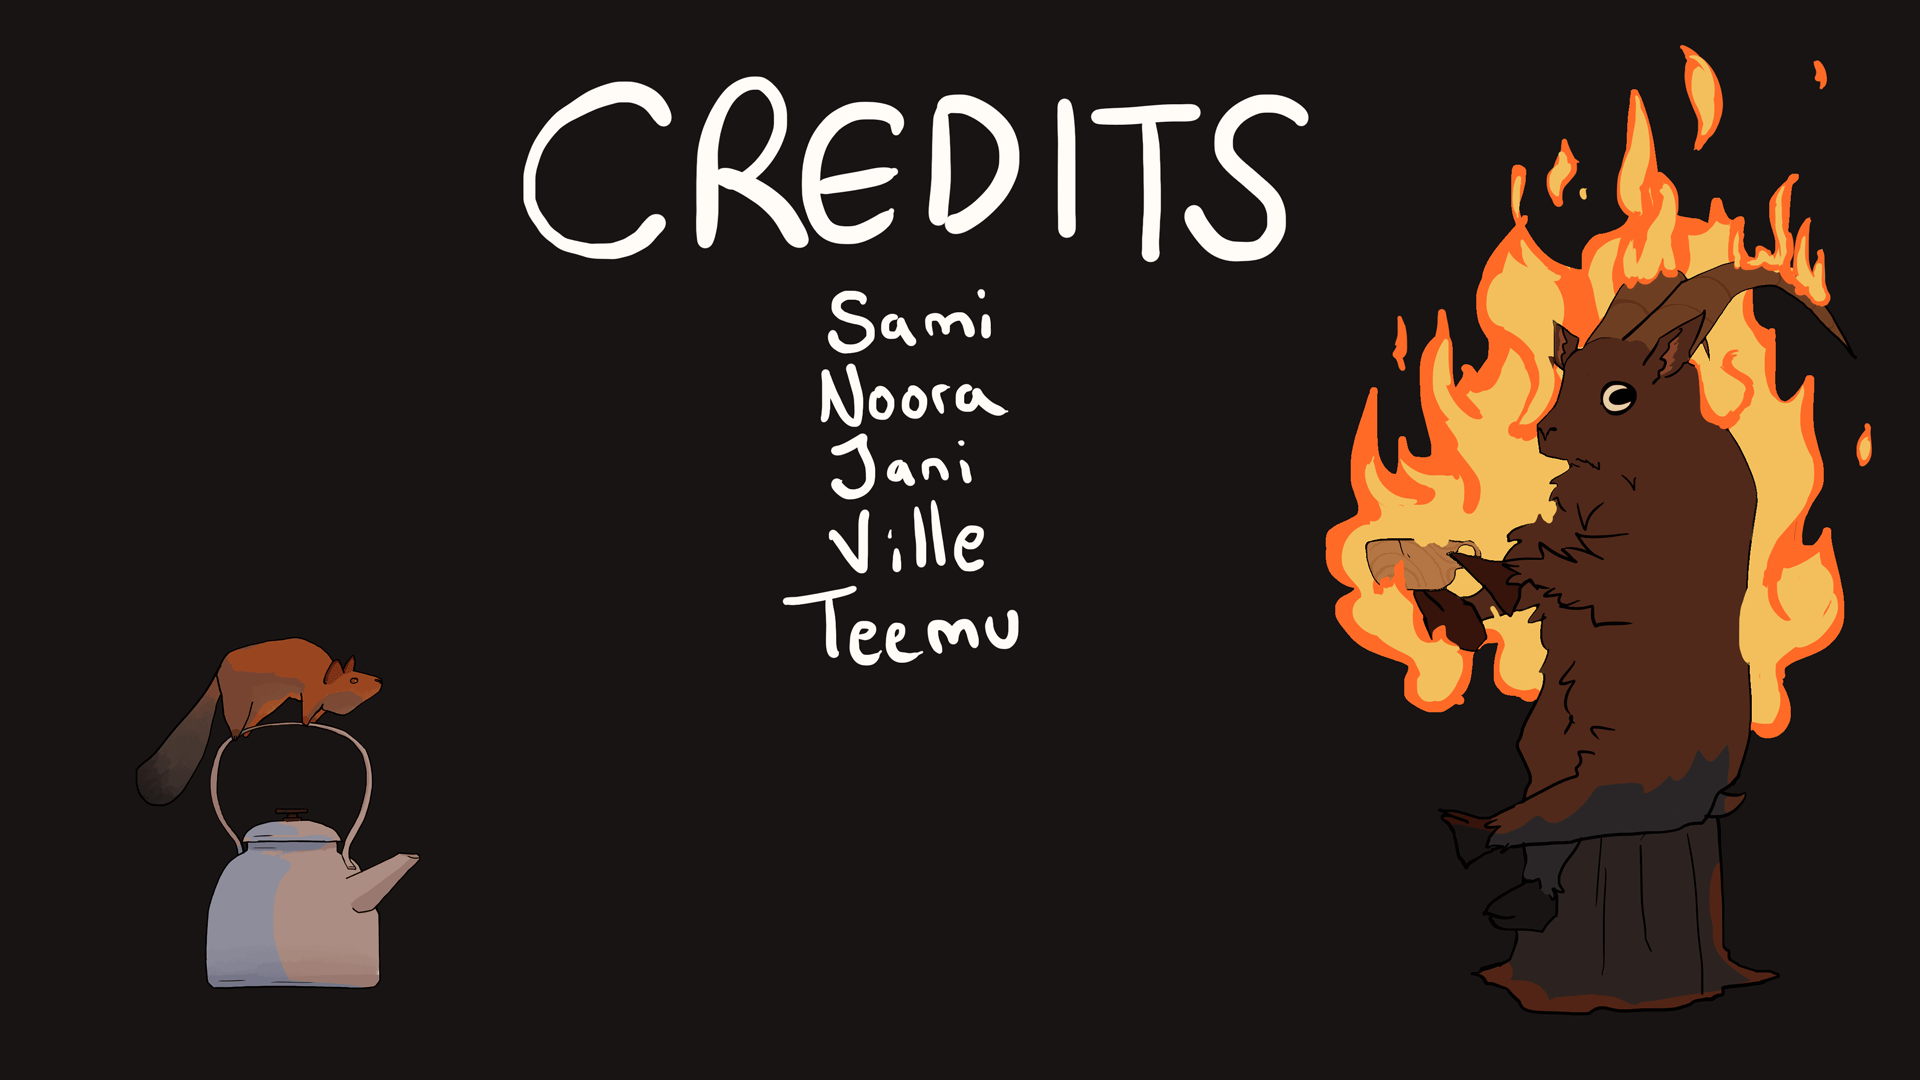 CREDITS
Sami
Noora
Jani
Ville
Teemu